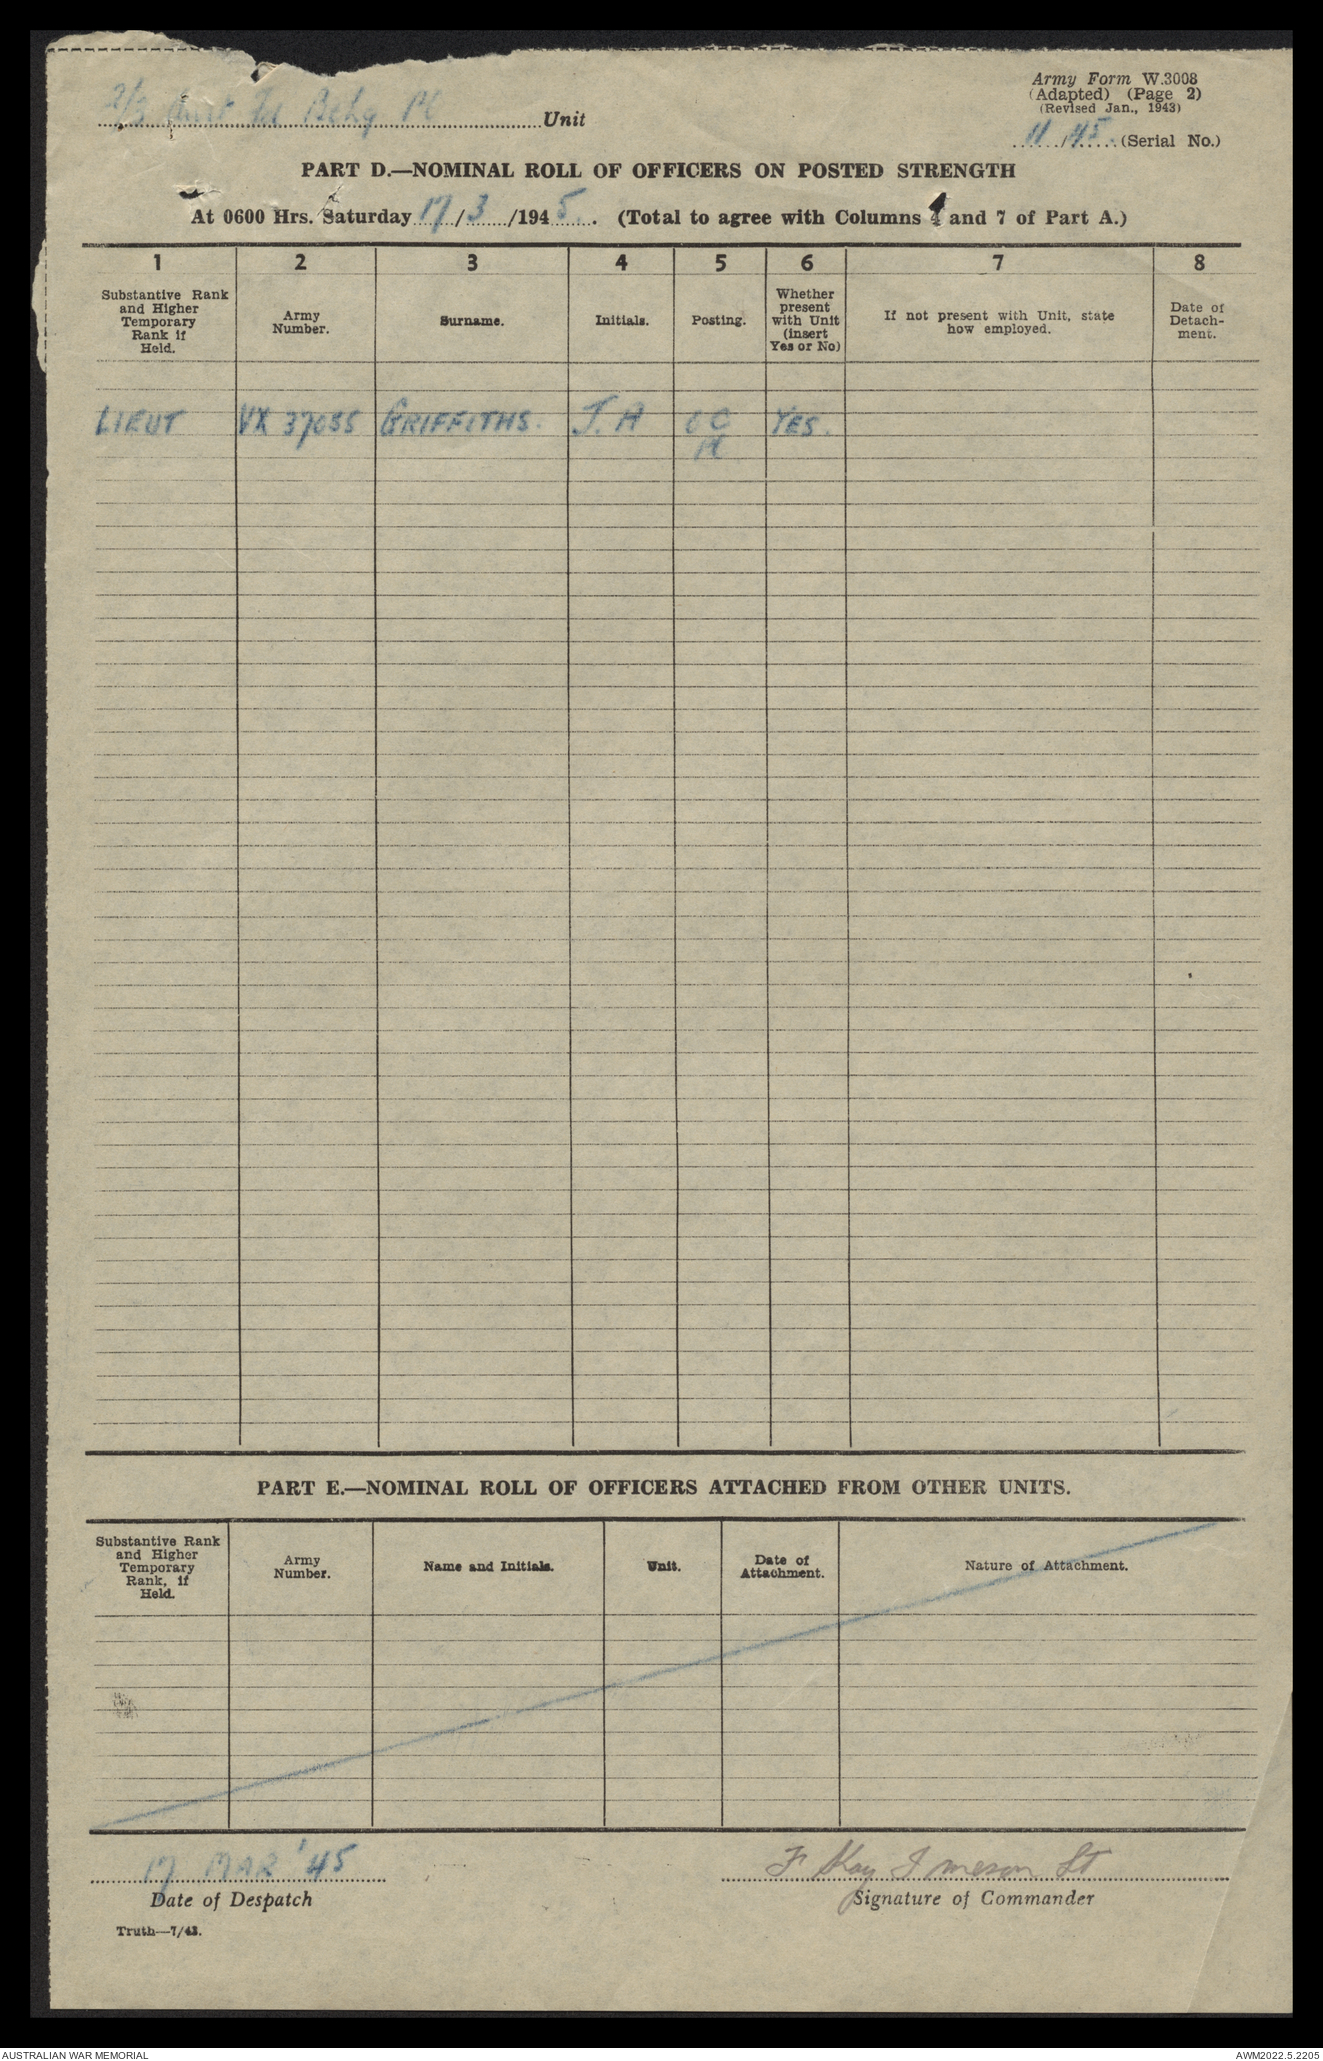 Army Form W.3008
(Adapted) (Page 2)
(Revised Jan., 1943)
2/3 Aust Fd Bchy Pl Unit
11/45. (Serial No.)
PART D.—NOMINAL ROLL OF OFFICERS ON POSTED STRENGTH
At 0600 Hrs. Saturday 17/3/1945. (Total to agree with Columns 4 and 7 of Part A.)
1 2 3 4 5 6 7 8
Substantive Rank and Higher Temporary Rank if Held.
Army Number.
Surname.
Initials.
Posting.
Whether present with Unit (insert Yes or No)
If not present with Unit, state how employed.
Date of Detach-ment.
LIEUT VX 37055 GRIFFITHS. J. A OC Pl YES.
PART E.—NOMINAL ROLL OF OFFICERS ATTACHED FROM OTHER UNITS.
Substantive Rank and Higher Temporary Rank, if Held.
Army Number.
Name and Initials.
Unit.
Date of Attachment.
Nature of Attachment.
17 MAR '45
Date of Despatch
F Kay Imeson Lt
Signature of Commander
Truth—7/43.
AUSTRALIAN WAR MEMORIAL
AWM2022.5.2205